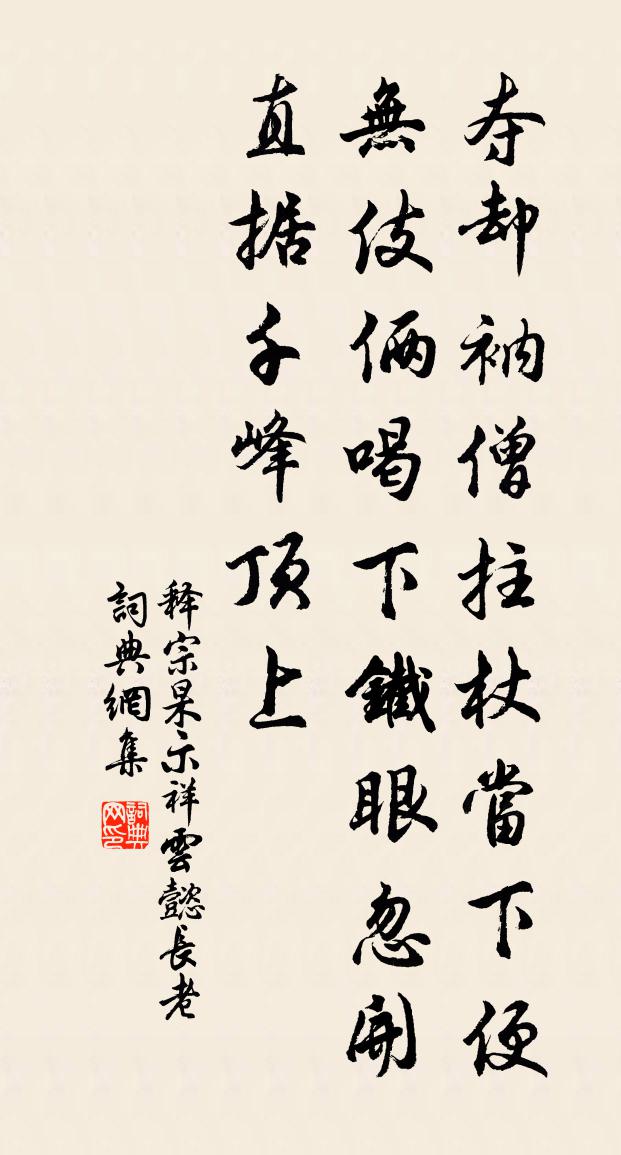 夺却衲僧拄杖當下便
無伎倆喝下鐵眼忽開
直据千峰頂上
释宗杲示祥雲懿長老
詞典網集
詞典网印